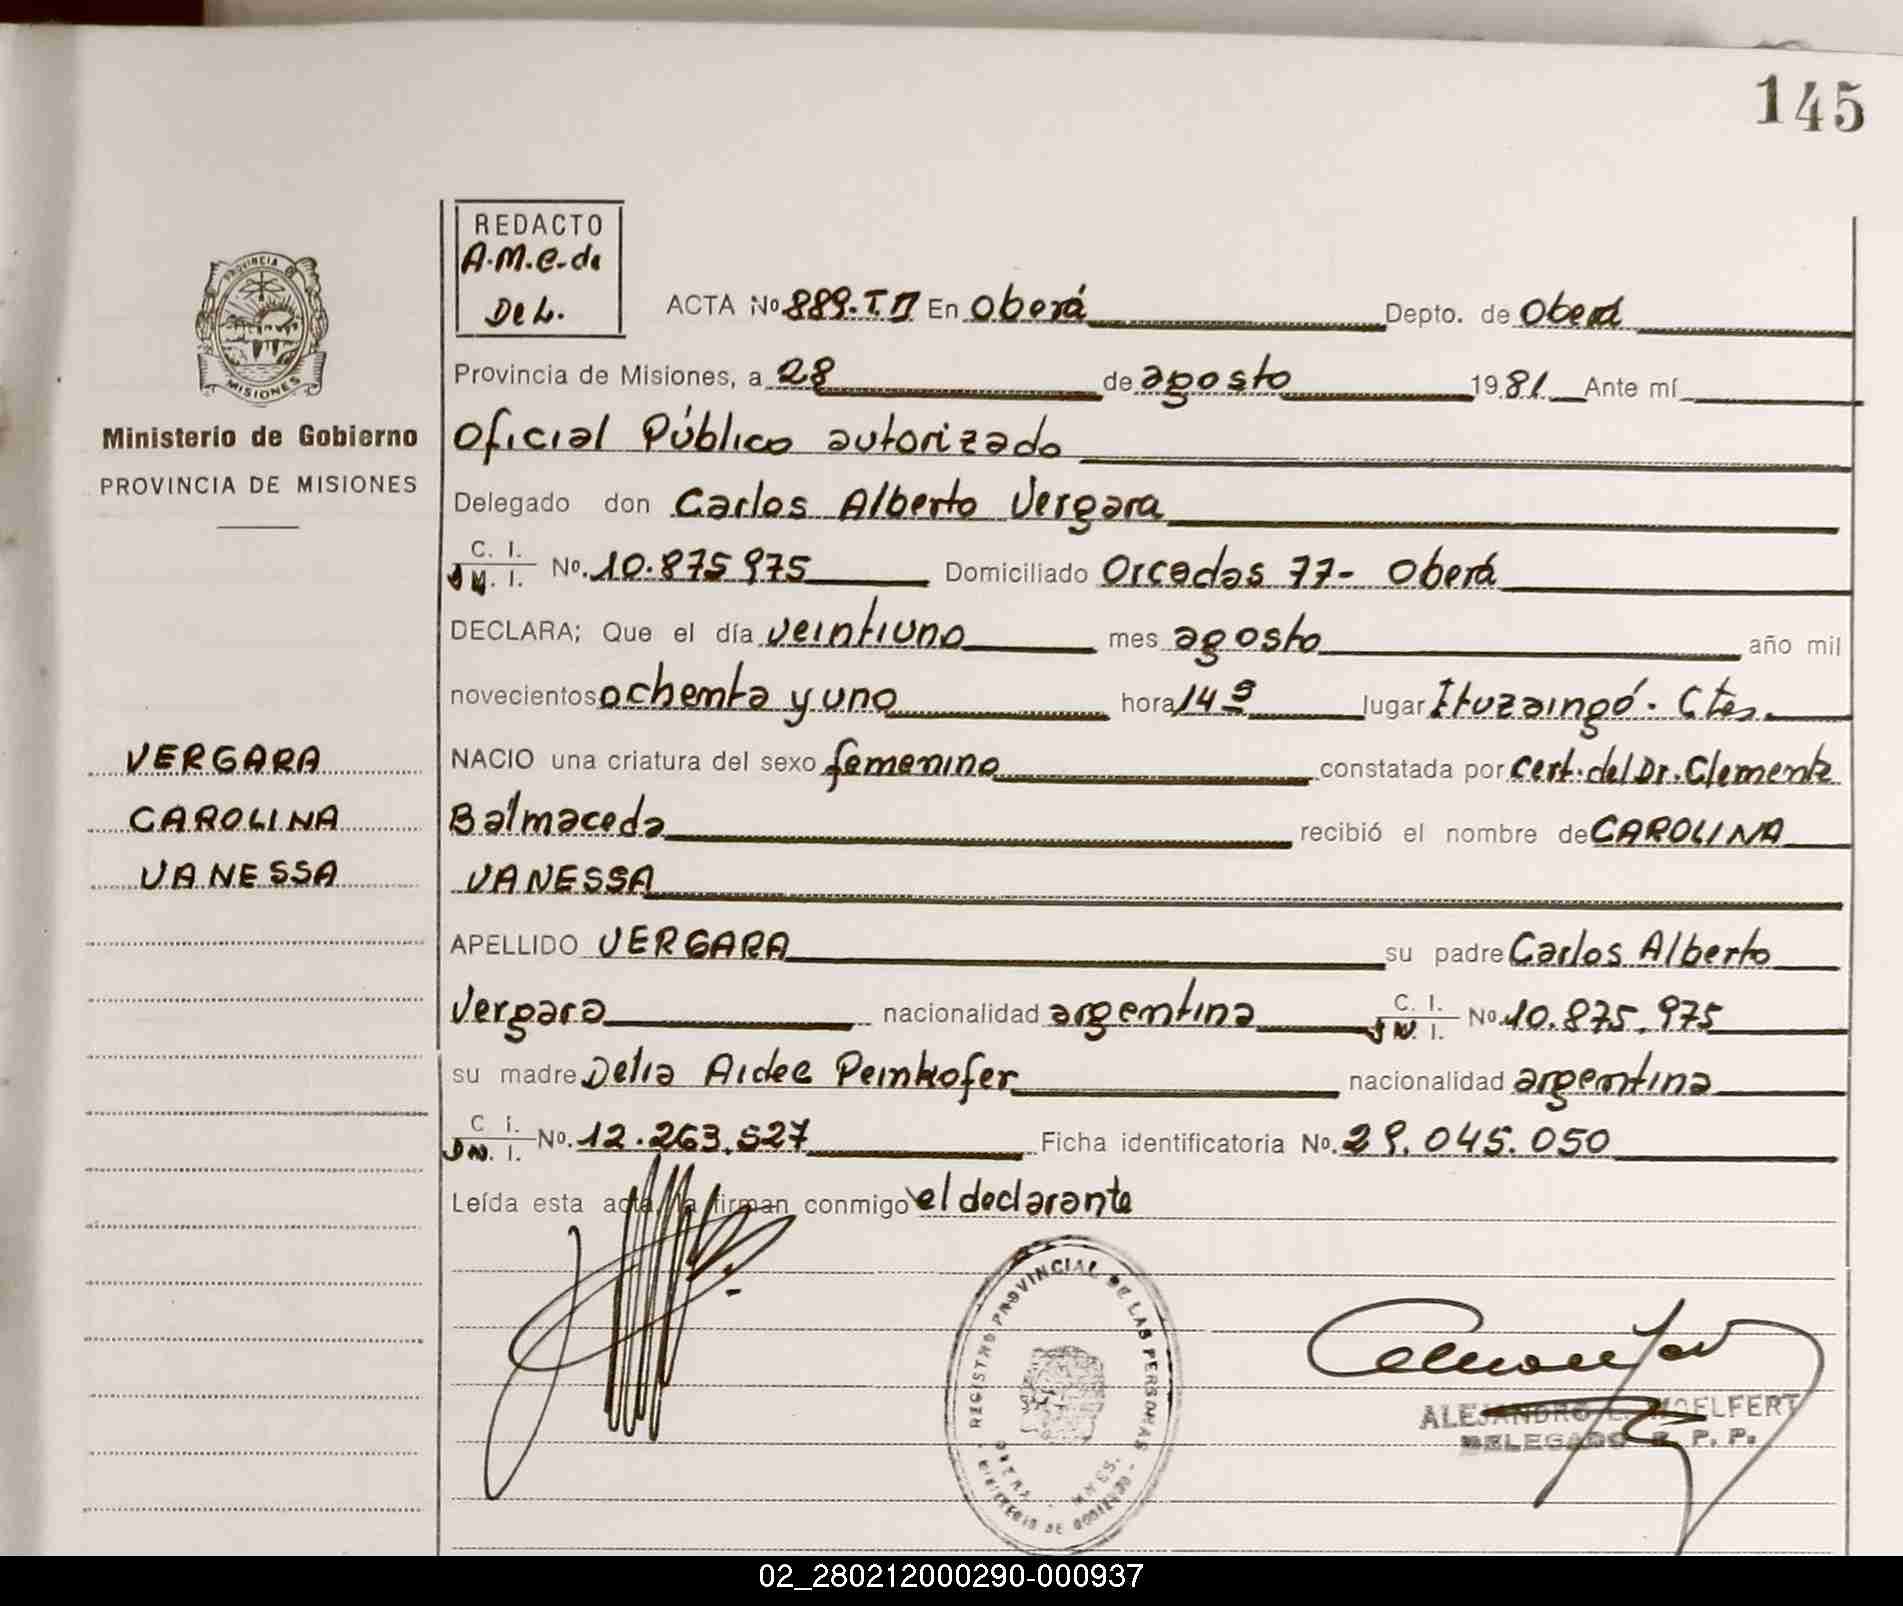 145
REDACTO
A.M.C. de
De L.
PROVINCIA DE
MISIONES
Ministerio de Gobierno
PROVINCIA DE MISIONES
ACTA No 889.T.II En Oberá Depto. de Oberá
Provincia de Misiones, a 28 de agosto 1981 Ante mí
Oficial Público autorizado
Delegado don Carlos Alberto Vergara
C. I.
D N. I. No. 10.875 975 Domiciliado Orcadas 77- Oberá
DECLARA; Que el día veintiuno mes agosto año mil
novecientos ochenta y uno hora 14 s lugar Ituzaingó. Ctes.
NACIO una criatura del sexo femenino constatada por cert. del Dr. Clemente
Balmaceda recibió el nombre de CAROLINA
VANESSA
APELLIDO VERGARA su padre Carlos Alberto
Vergara nacionalidad argentina C. I.
D N. I. No. 10.875.975
su madre Delia Aidee Peinkofer nacionalidad argentina
C I.
D N. I. No. 12.263.527 Ficha identificatoria No. 29.045.050
Leída esta acta, la firman conmigo el declarante
VERGARA
CAROLINA
VANESSA
REGISTRO PROVINCIAL DE LAS PERSONAS
MINISTERIO DE GOBIERNO
OBERA - MNES.
ALEJANDRO
DELEGADO R. P. P.
02_280212000290-000937